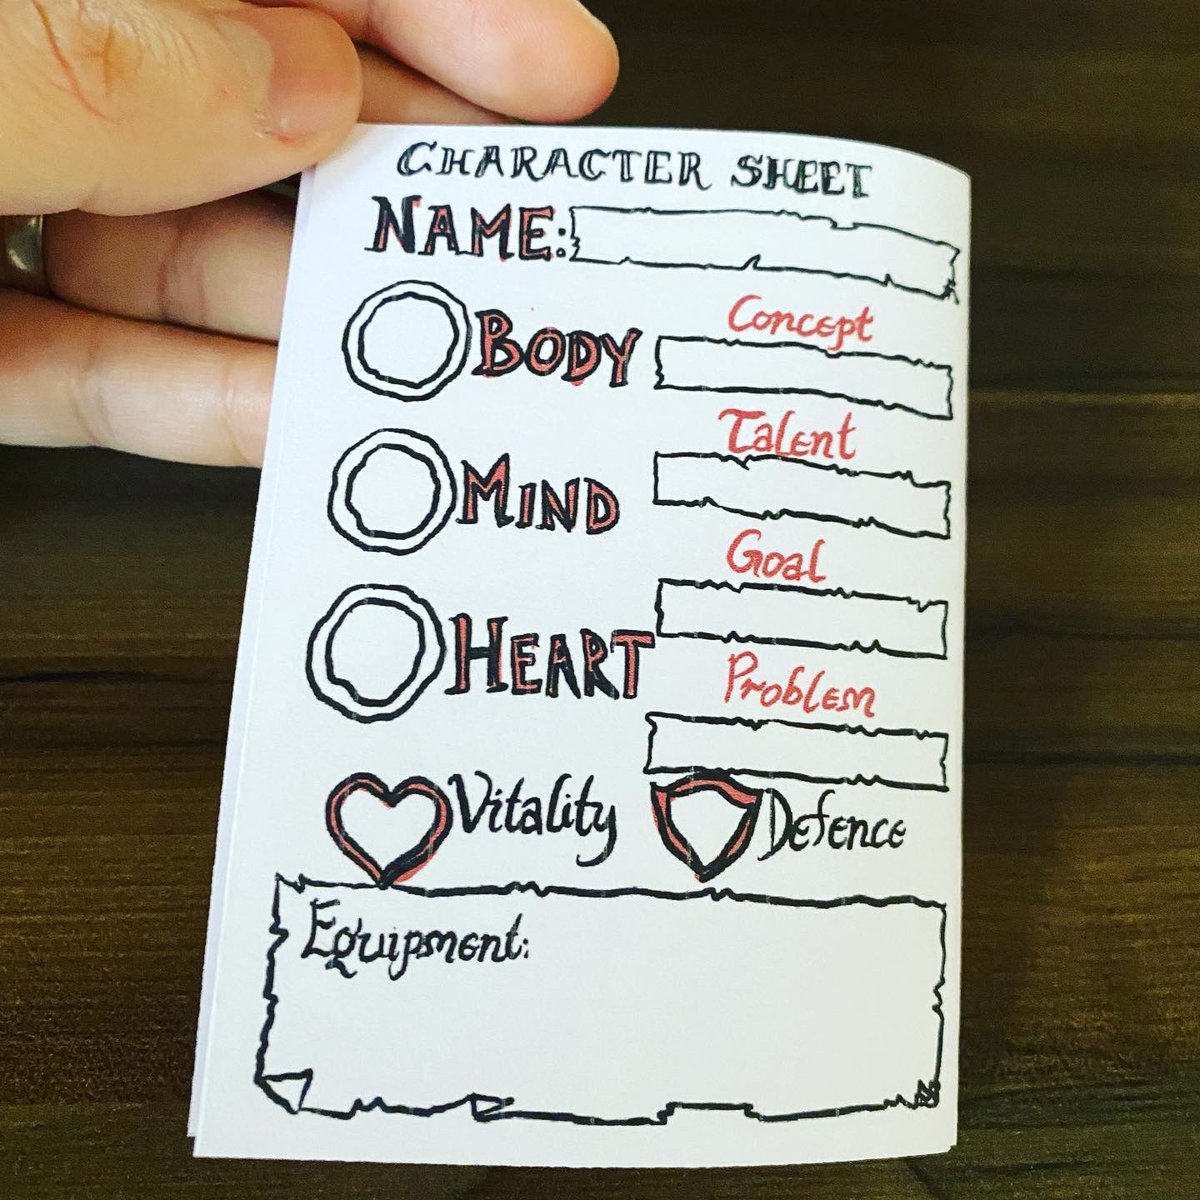 CHARACTER SHEET
NAME:
BODY
Concept
Talent
MIND
Goal
HEART
Problem
Vitality
Defence
Equipment: